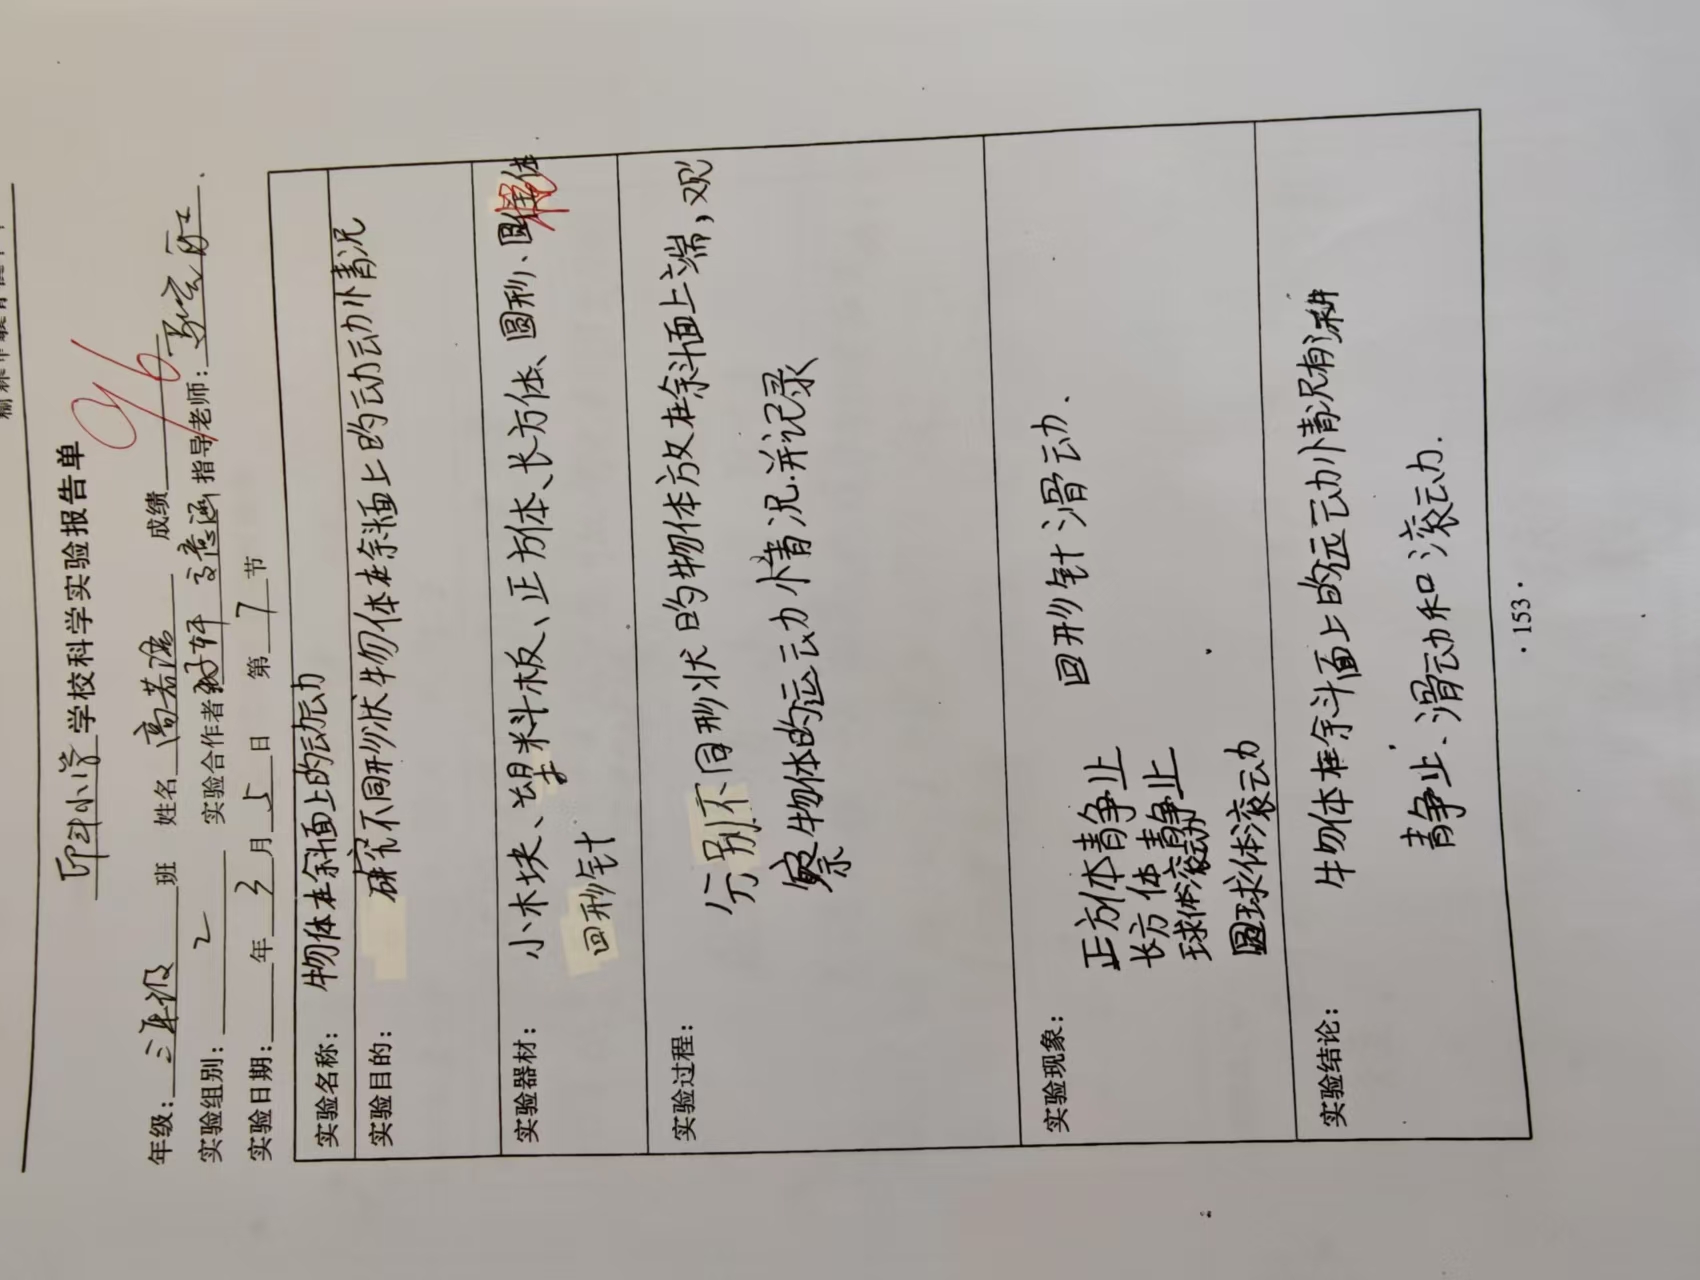 学校科学实验报告单
96
年级：三年级 班 姓名 高若涵 成绩
实验组别：2 实验合作者 轩 文意涵 指导老师：
实验日期： 年 3 月 5 日 第 7 节
实验名称： 物体在斜面上的运动
实验目的： 研究不同形状物体在斜面上的运动情况
实验器材： 小木块、塑料板、正方体、长方体、圆形、圆柱体
回形针
实验过程： 分别不同形状的物体放在斜面上端，观
察物体的运动情况.并记录
实验现象： 正方体静止 回形针滑动.
长方体静止
球体滚动
圆球体滚动
实验结论： 物体在斜面上的运动情况有三种
静止、滑动和滚动.
·153·